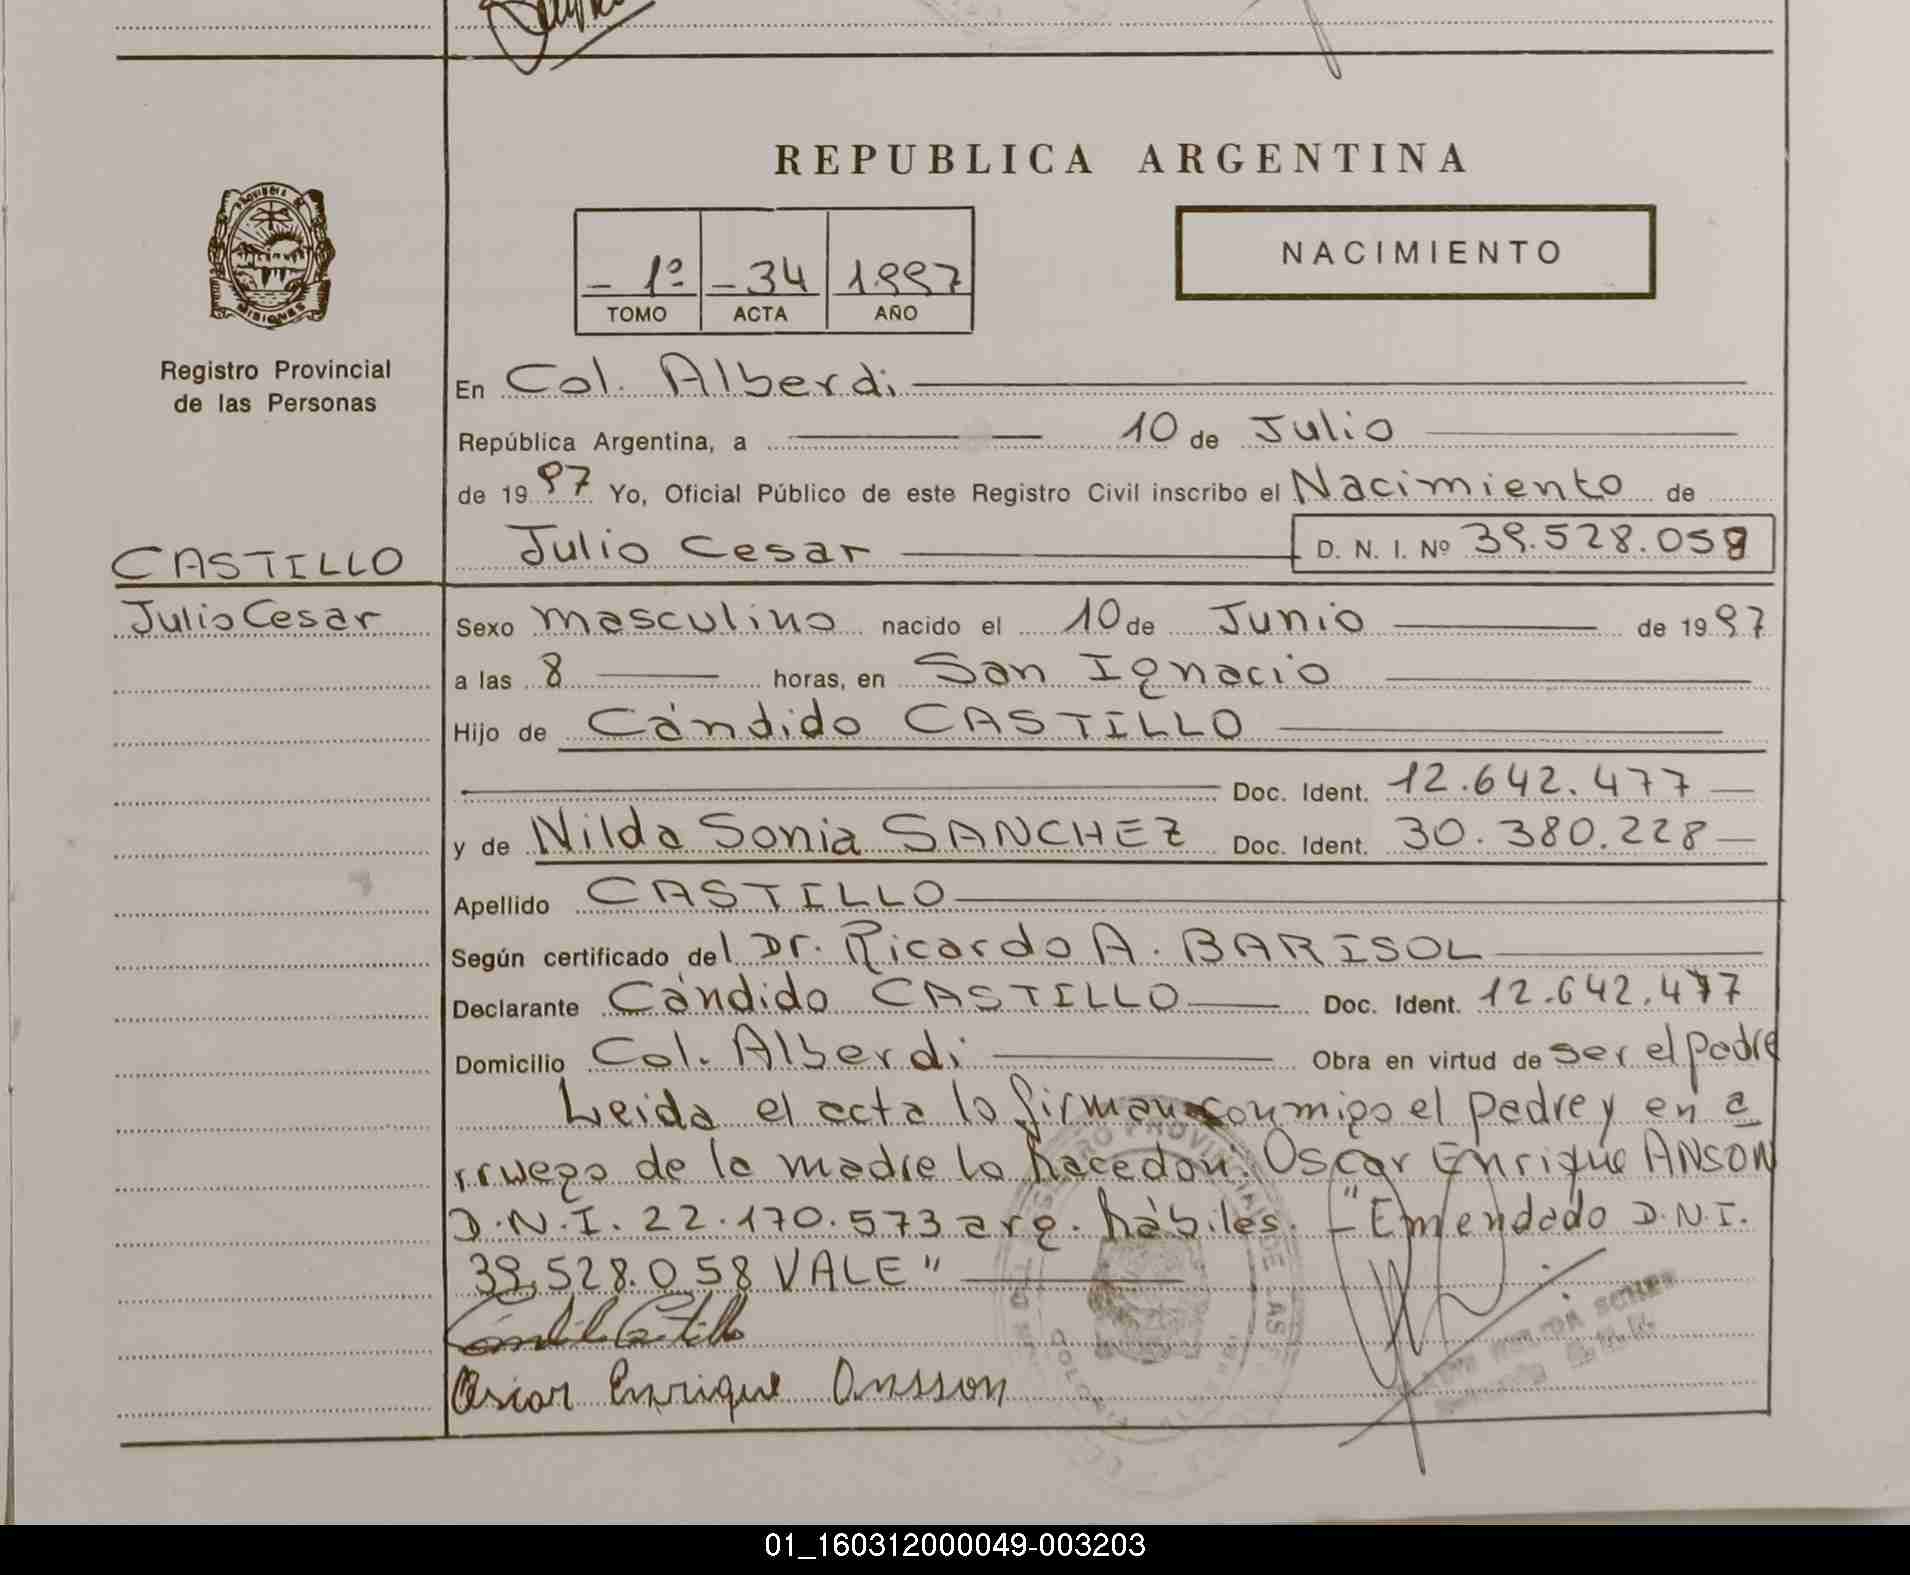 REPUBLICA ARGENTINA
- 1º - 34 1997
TOMO ACTA AÑO
NACIMIENTO
PROVINCIA DE
MISIONES
Registro Provincial
de las Personas
En Col. Alberdi
República Argentina, a 10 de Julio
de 1997 Yo, Oficial Público de este Registro Civil inscribo el Nacimiento de
CASTILLO Julio Cesar D. N. I. Nº 39.528.058
Julio Cesar Sexo masculino nacido el 10 de Junio de 1997
a las 8 horas, en San Ignacio
Hijo de Cándido CASTILLO
Doc. Ident. 12.642.477
y de Nilda Sonia SANCHEZ Doc. Ident. 30.380.228
Apellido CASTILLO
Según certificado del Dr. Ricardo A. BARISOL
Declarante Cándido CASTILLO Doc. Ident. 12.642.477
Domicilio Col. Alberdi Obra en virtud de ser el padre
Leida el acta lo firman conmigo el padre y en a
rruego de la madre lo hace don: Oscar Enrique ANSON
D.N.I. 22.170.573 arg. hábiles. - "Emendado D.N.I.
39.528.058 VALE"
Cándido Castillo
Oscar Enrique Ansson
01_160312000049-003203